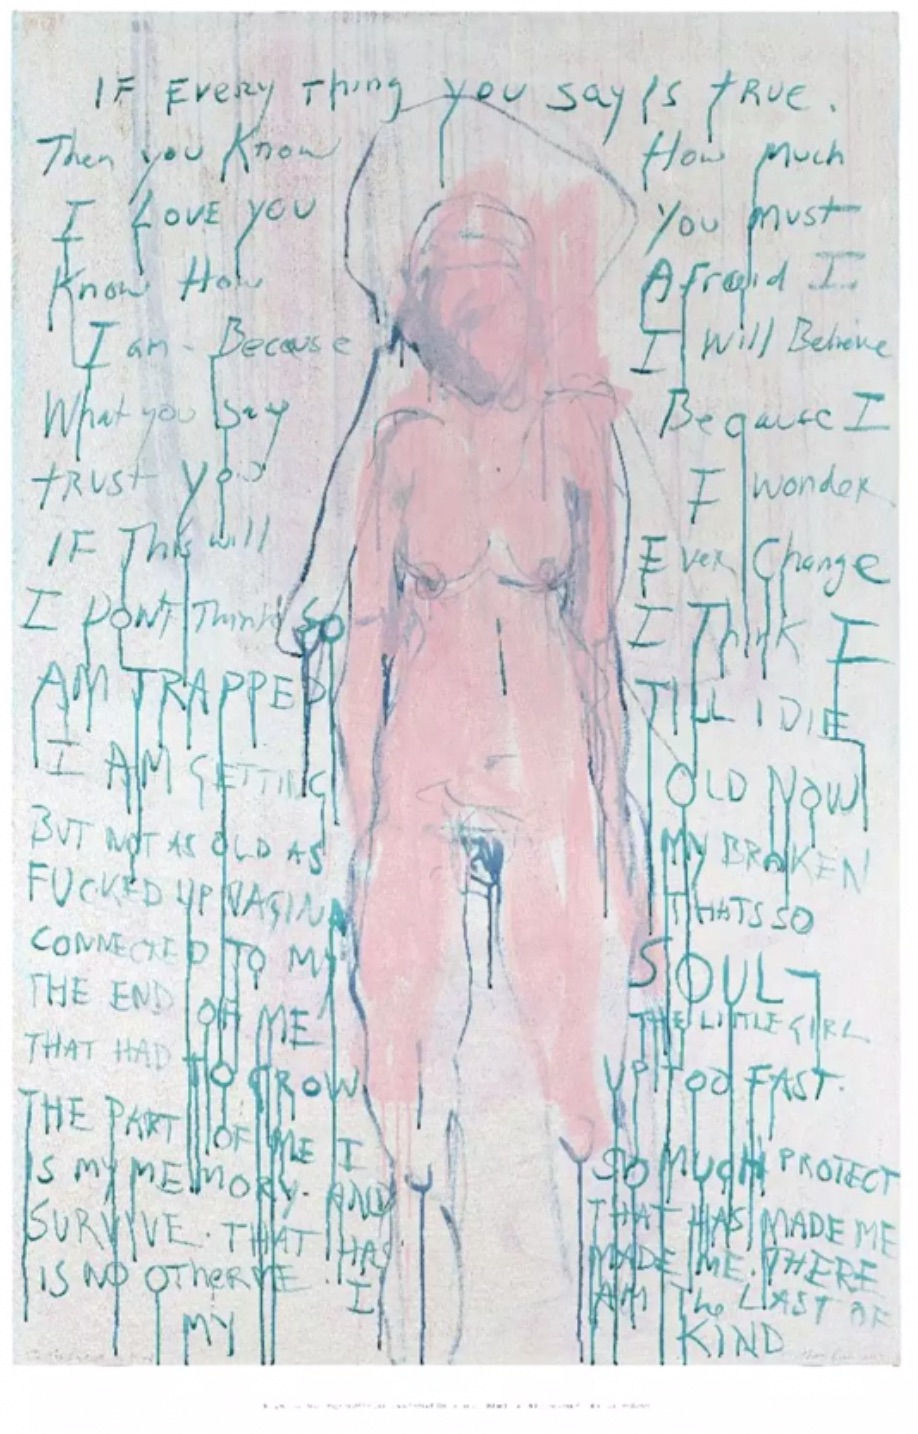 IF Every Thing you say Is tRue.
Then you Know How much
I Love you You must
Know How Afraid I
I am - Because I Will Believe
What you say Because I
tRust you I wonder
IF This will Ever Change
I DONT Think SO I Think I
AM TRAPPED TILL I DIE
I AM GETTING OLD NOW
BUT NOT AS OLD AS MY BROKEN
FUCKED UP VAGINA THATS SO
CONNECTED TO MY SOUL -
THE END OF ME THE LITTLE GIRL
THAT HAD TO GROW UP TOO FAST.
THE PART OF ME I SO MUCH PROTECT
IS MY MEMORY. AND THAT HAS MADE ME
SURVIVE. THAT HAS MADE ME. THERE
IS NO OTher ME I AM The LAST OF
MY KIND